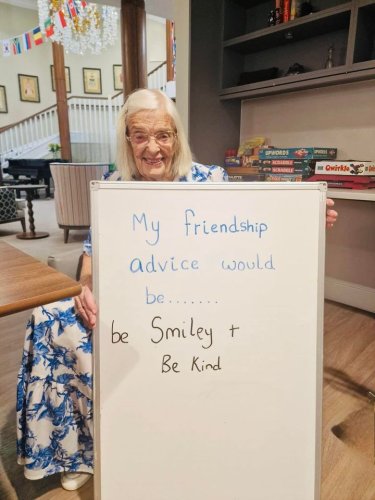 My friendship
advice would
be.......
be Smiley +
Be Kind
UPWORDS
SCRABBLE
SCRABBLE
Qwirkle